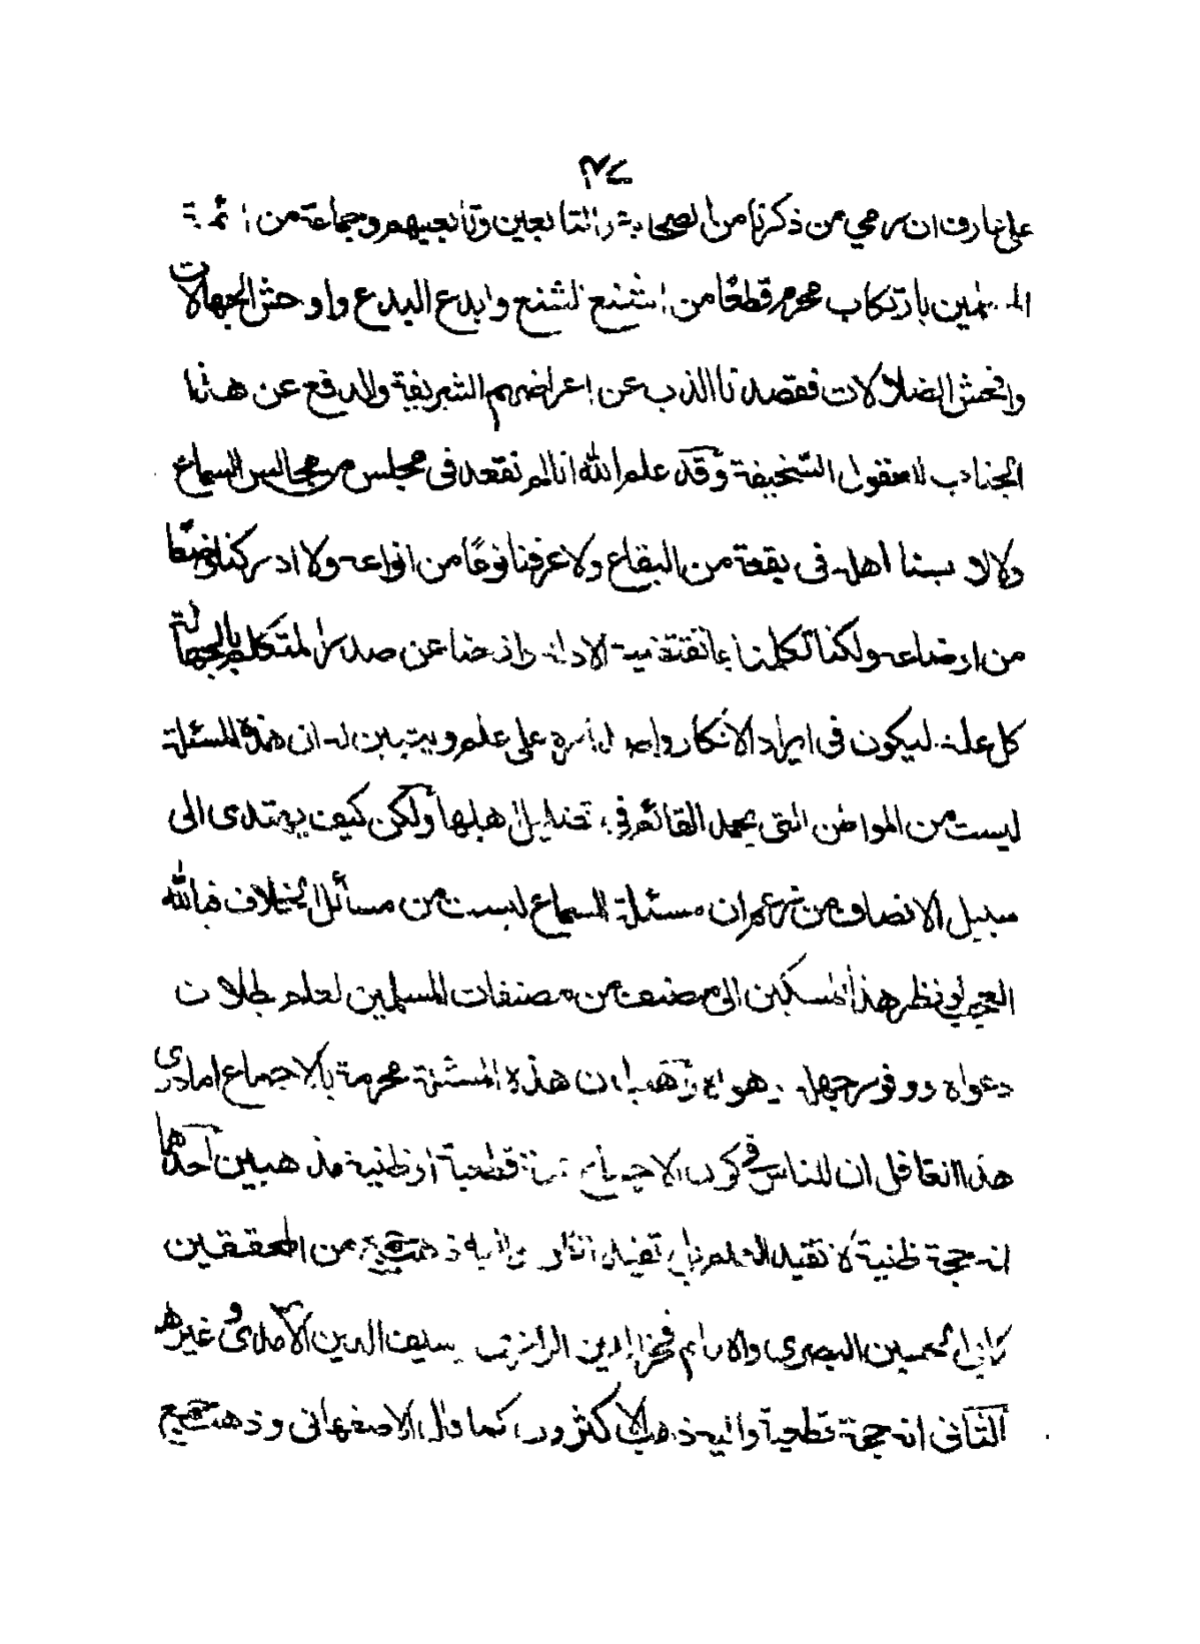 ٣٧
على عارف ان رمي من ذكرنا من الصحابة والتابعين وتابعيهم وجماعة من ائمة
المسلمين بارتكاب محرم قطعًا من اشنع الشنع وابدع البدع واوحش الجهالات
وافحش الضلالات فقصدنا الذب عن اعراضهم الشريفة والدفع عن هذا
الجناب للعقول السخيفة وقد علم الله انا لم نقعد في مجلس من مجالس السماع
ولا لابسنا اهله في بقعة من البقاع ولا عرفنا نوعًا من انواعه ولا ادركنا وضعًا
من اوضاعه ولكنا تكلمنا بما تقتضيه الادلة وازحنا عن صدر المتكلم بالجهالة
كل علة ليكون في ايراد الانكار واصداره على علم ويتبين له ان هذه المسئلة
ليست من المواطن التي يحمل القائم في تضليل اهلها ولكن كيف يهتدى الى
سبيل الانصاف من زعم ان مسئلة السماع ليست من مسائل الخلاف فبالله
العجب لو نظر هذا المسكين الى مصنف من مصنفات المسلمين لعلم بطلان
دعواه ووفور جهله وهواه وهب ان هذه المسئلة محرمة بالاجماع اما درى
هذا الغافل ان للناس في كون الاجماع حجة قطعية او ظنية مذهبين احدهما
انه حجة ظنية لا تفيد العلم بل تفيد الظن واليه ذهب جمع من المحققين
كابي الحسين البصري والامام فخر الدين الرازي وسيف الدين الآمدى وغيرهم
الثاني انه حجة قطعية واليه ذهب الاكثرون كما قال الاصفهاني وذهب جمع